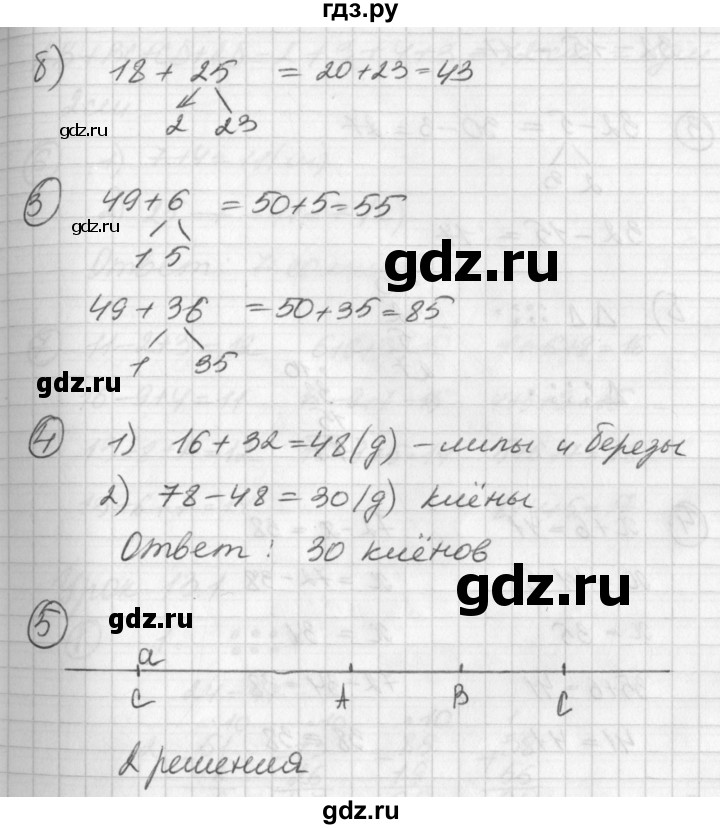 гдз.ру
б) 18 + 25 = 20+23=43
2 23
gdz.ru
③ 49+6 = 50+5=55
gdz.ru
1 5
gdz.ru
49 + 36 = 50+35=85
1 35
gdz.ru
④ 1) 16+32=48(д) – липы и березы
2) 78-48=30(д) клёны
Ответ: 30 клёнов
gdz.ru
⑤ gdz.ru
a
C A B C
2 решения
gdz.ru